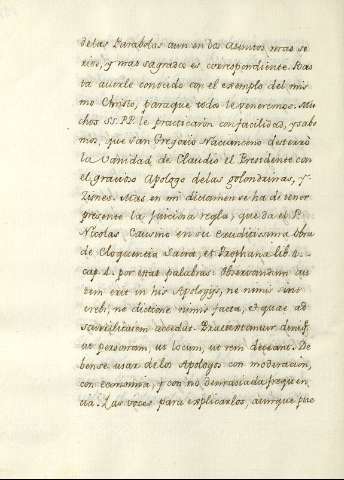 de las Parabolas aun en los asuntos mas se
rios, y mas sagrados es correspondiente. Bas
ta averle conocido con el exemplo del mis
mo Christo, para que todos le veneremos. Mu
chos SS. PP. le practicaron con facilidad, y sabe
mos, que San Gregorio Nacianceno desterró
la vanidad de Claudio el Presidente con
el gracioso Apologo de las golondrinas, y
Zisnes. Mas en mi dictamen se ha de tener
presente la juiciosa regla, que da el P.
Nicolas Causino en su eruditissima obra
de Eloquencia Sacra, et Prophana lib. 4.
cap. 1. por estas palabras. Observandum au
tem erit in his Apologijs, ne nimis sint
crebi, ne dictione nimis facta, et quae ad
scurrilitatem accedat. Tractentur deniq
ut personam, ut locum, ut rem deceant. De
bense usar de los Apologos con moderacion,
con economia, y con no demasiada frequen
cia. Las voces para explicarlos, aunque pue